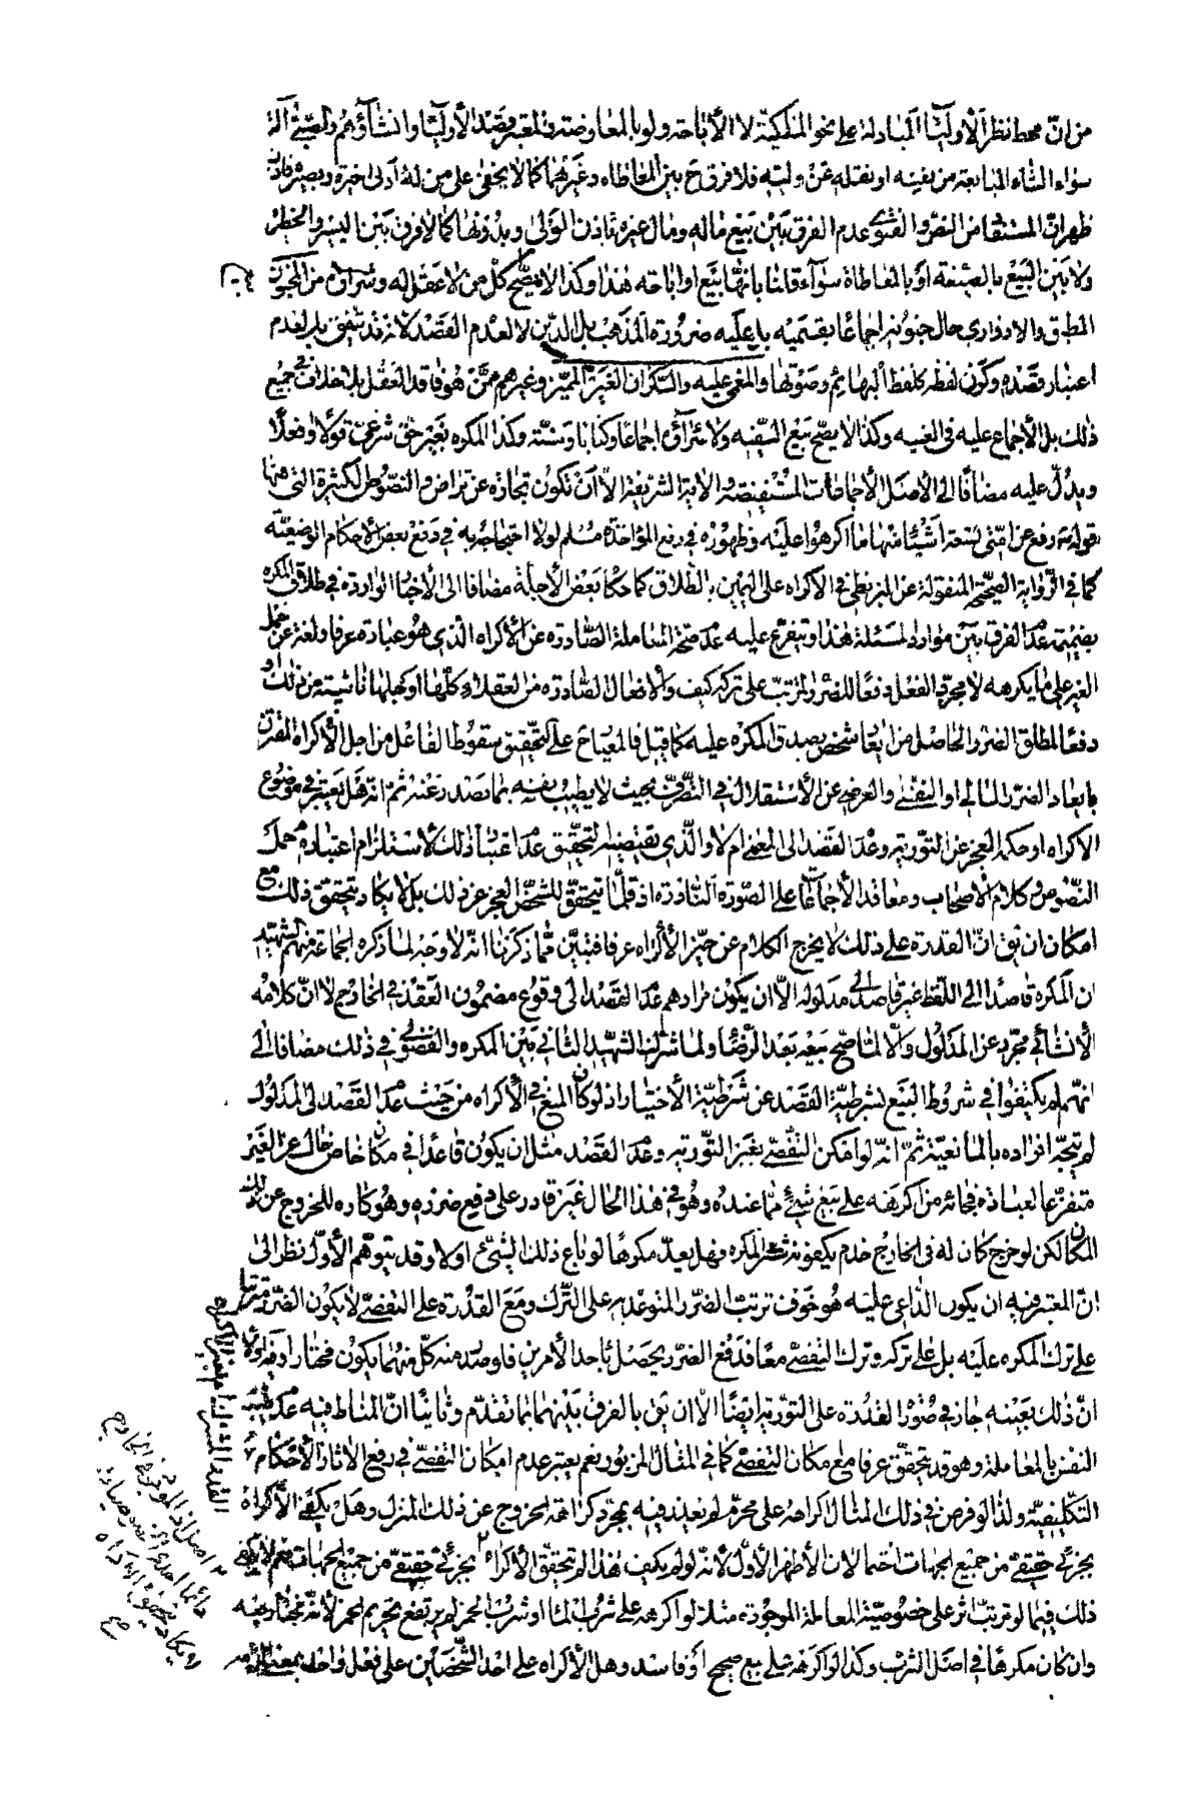 من انّ محط نظر الأولياء المبادلة على نحو الملكيّة لا الأباحة ولو بالمعاوضة فالمعتبر قصد الأولياء وانشاؤهم والصبيّ آلة
سواء انشاء المبايعة من نفسه او بنقله عن وليّه فلا فرق ح بين المعاطاه وغيرها كما لا يخفى على من له أدنى خبرة وبصيرة
ظهر انّ المستفاد من النصّ والفتوى عدم الفرق بين بيع ماله ومال غيره باذن الولى وبدونها كما لا فرق بين اليسير والخطير
ولا بين البيع بالصيغة أو بالمعاطاة سوآء قلنا بانّها بيع او اباحه هذا وكذا لا يصحّ كلّ من لا عقل له وشراؤه من المجنون
المطبق والادوارى حال جنونه اجماعًا بقسميه بل عليه ضرورة المذهب بل الدّين لا لعدم القصد لانه قد يتفق بل لعدم
اعتبار قصده وكون لفظه كلفظ البهايم وصوتها والمغمى عليه والسّكران الغير المميّز وغيرهم ممّن هو فاقد العقل بلا خلاف في جميع
ذلك بل الأجماع عليه في الغنيه وكذا لا يصّح بيع السّفيه ولا شرآؤه اجماعًا وكتابًا وسنّة وكذا المكره بغير حقّ شرعيّ قولًا وفعلًا
ويدلّ عليه مضافًا الى الأصل الأجماعات المستفيضة والآية الشريفة الّا أن تكون تجارة عن تراض والنصّوص الكثيرة التى منها
قوله ص رفع عن امّتى تسعة اشيآء منها ما اكرهوا عليه وظهوره في رفع المؤاخذة مسلم لولا احتجاجه به في دفع بعض الأحكام الوضعيّه
كما في الرّواية الصّحيحة المنقولة عن البزنطي في الاكراه على اليمين بالطّلاق كما حكاه بعض الأجلّة مضافا الى الأخبار الواردة في طلاق المكره
بضميمة عدم الفرق بين موارد المسئلة هذا ويتفرّع عليه عدم صحّة المعاملة الصّادرة عن الأكراه الّذى هو عبارة عرفا ولغة عن حمل
الغير على ما يكرهه لا مجرّد الفعل دفعًا للضّرر المترتبّ على تركه كيف والأفعال الصّادرة من العقلاء كلّها او جلّها ناشية من ذلك
دفعًا لمطلق الضرر والحاصل من ايعاد شخص يصدق المكره عليه كما قيل فالمعيار على التحقيق سقوط الفاعل من اجل الأكراه المقترن
بايعاد الضرر المالي او النفسى والعرضى عن الأستقلال في التّصرّف بحيث لا يطيب نفسه بما يصدر عنه ثمّ انّه هل يعتبر في موضوع
الاكراه او حكمه العجز عن التّورية وعدم القصد الى المعنى ام لا والّذى يقتضيه التحقيق عدم اعتبار ذلك لأستلزام اعتباره حمل
النصّوص وكلام الأصحاب ومعاقد الأجماعات على الصّورة النّادرة اذ قلّما يتحقّق للشّخص العجز عن ذلك بل لا يكاد يتحقق ذلك مع
امكان ان يق انّ القدرة على ذلك لا يخرج الكلام عن حيّز الأكراه عرفا فتبيّن ممّا ذكرنا انّه لا وجه لما ذكره جماعة منهم الشهيد
ان المكره قاصد الى اللّفظ غير قاصد الى مدلوله الّا ان يكون مرادهم عدم القصد الى وقوع مضمون العقد في الخارج لا انّ كلامه
الأنشائي مجرّد عن المدلول والّا لما صّح بيعه بعد الرّضا ولما شرك الشهيد الثاني بين المكره والفضولي في ذلك مضافا الى
انّهم لم يكتفوا في شروط البيع بشرطيّة القصد عن شرطيّة الأختيار اذ لو كان المنع في الأكراه من حيث عدم القصد الى المدلول
لم يتجّه افراده بالمانعيّة ثمّ انّه لو امكن التفصّي بغير التّورية وعدم القصد مثل ان يكون قاعدا في مكان خاص خال عن الغير
متفرّعا لعبادة فجائه من اكرهه على بيع شيء ممّا عنده وهو في هذا الحال غير قادر على دفع ضرره وهو كاره للخروج عن ذلك
المكان لكن لو خرج كان له في الخارج خدم يكفونه شر المكره فهل يعدّ مكرهًا لو باع ذلك الشيء اولا وقد يتوهّم الأوّل نظر الى
انّ المعتبر فيه ان يكون الدّاعي عليه هو خوف ترتّب الضرر المتوعّد به على التّرك ومع القدرة على التفصّي لا يكون الضرر مترتبا
على ترك المكره عليه بل على تركه وترك التفصّي معًا فدفع الضّرر يحصل باحد الأمرين فلو صدر منه كلّ منهما يكون مختارا وفيه اولا
انّ ذلك بعينه جار في صور القدرة على التورية ايضًا الّا ان يق بالفرق بينهما بما تقدّم وثانيًا انّ المناط فيه عدم طيب
النفس بالمعاملة وهو قد يتحقّق عرفا مع امكان التفصّي كما في المثال المزبور نعم يعتبر عدم امكان التفصّي في رفع الاثار الأحكام
التكليفيّه ولذا لو فرض في ذلك المثال اكراهه على محرّم لم يعذر فيه بمجرّد كراهة الخروج عن ذلك المنزل وهل يكفى الأكراه
بجزئي حقيقي من جميع الجهات احتمالان الأظهر الأوّل لأنّه لو لم يكف هذا لم يتحقّق الأكراه بجزئي حقيقي من جميع الجهات نعم لا يكفى
ذلك فيما لو ترتّب اثر على خصوصيّة المعاملة الموجودة مثلا لو اكرهه على شرب الماء او شرب الخمر لم يرتفع تحريم الخمر لأنّه مختار فيه
وان كان مكرهًا في اصل الشرب وكذا لو اكرهه على بيع صحيح أو فاسد وهل الأكراه على احد الشّخصين على فعل واحد بمعنى